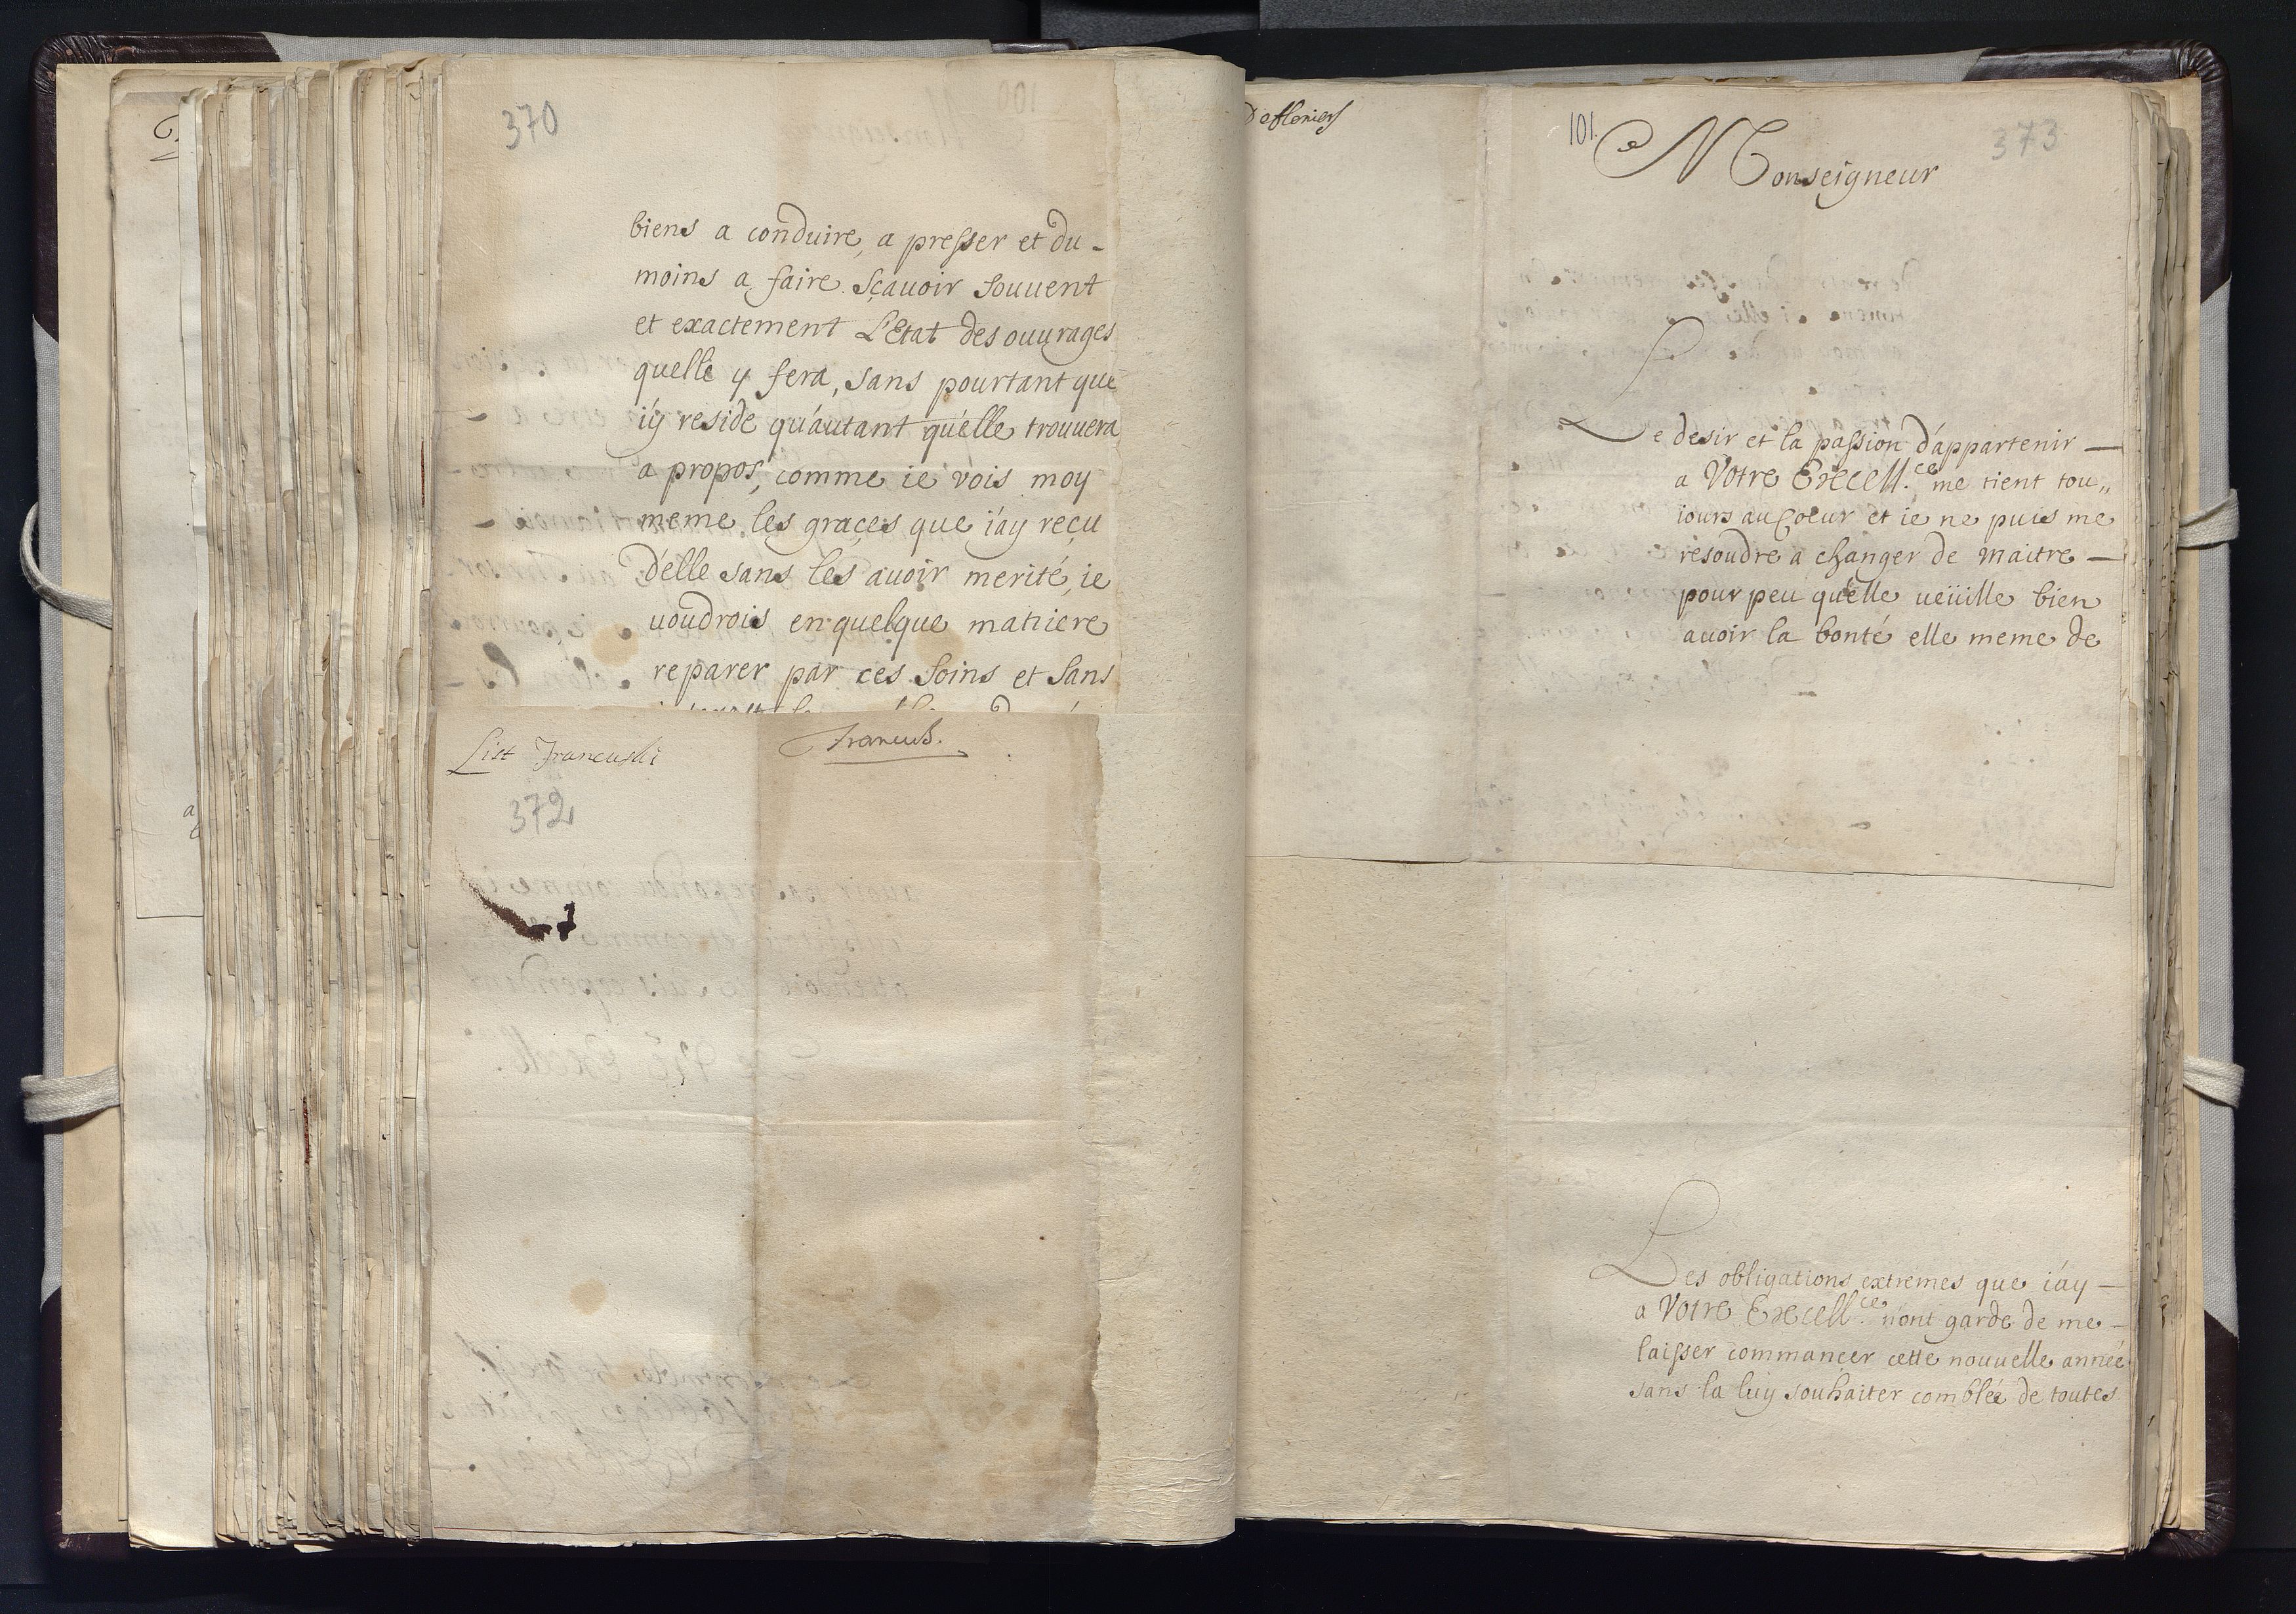 370
biens a conduire, a presser et du-
moins a faire sçauoir souuent
et exactement L'Etat des ouurages
quelle y fera, sans pourtant que
i'y reside qu'autant qu'elle trouuera
a propos, comme ie vois moy
meme les graçes que i'ay reçu
D'elle sans les auoir merité, ie
uoudrois en quelque maniere
reparer par ces soins et sans
List Francuski
Francus.
372
101.
373
Monseigneur
Le desir et la passion d'appartenir —
a Votre Excell.ce me tient tou„
iours au Coeur et ie ne puis me
resoudre a changer de maitre —
pour peu qu'elle ueüille bien
auoir la bonté elle meme de
Les obligations extremes que i'ay —
a Votre Excell.ce n'ont garde de me -
laisser commancer cette nouuelle année
sans la luy souhaiter comblée de toutes